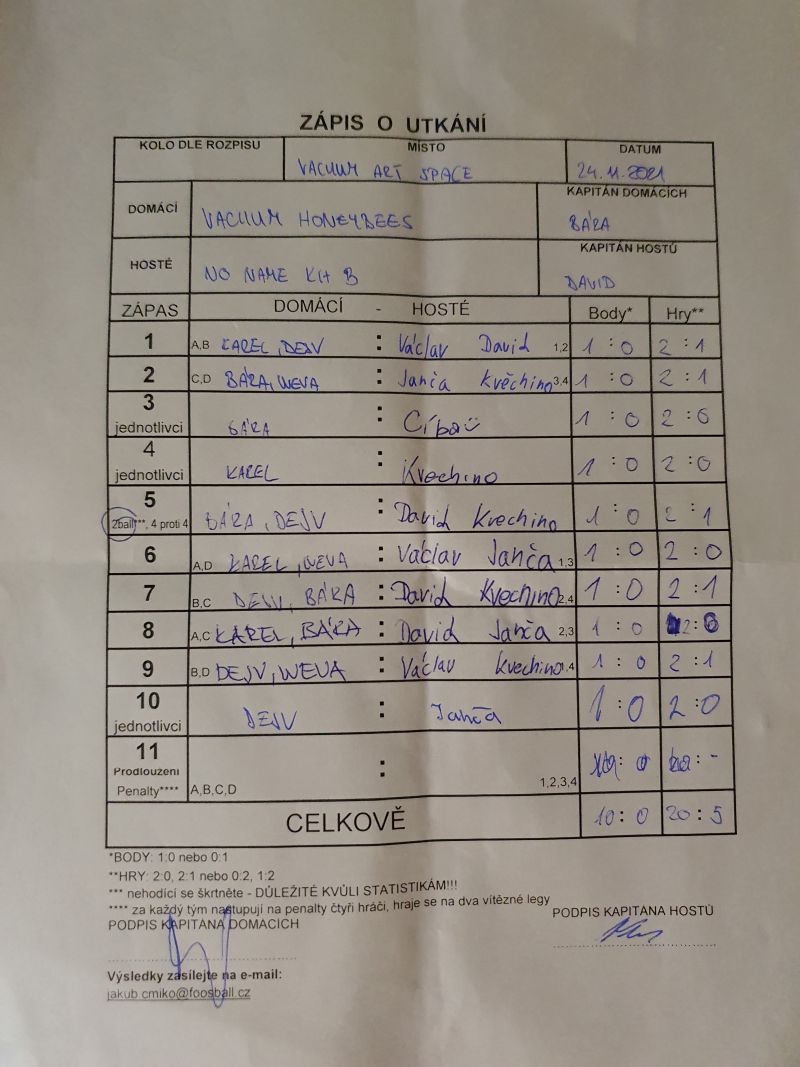 ZÁPIS O UTKÁNÍ
KOLO DLE ROZPISU MÍSTO DATUM
VACUUM ART SPACE 24.11.2021
DOMÁCÍ VACUUM HONEYBEES KAPITÁN DOMÁCÍCH BÁRA
HOSTÉ NO NAME KH B KAPITÁN HOSTŮ DAVID
ZÁPAS DOMÁCÍ - HOSTÉ Body* Hry**
1 A,B KAREL, DEJV : Václav David 1,2 1 : 0 2 : 1
2 C,D BÁRA, WEVA : Janča Kvěchino 3,4 1 : 0 2 : 1
3 jednotlivci BÁRA : Cíba 1 : 0 2 : 0
4 jednotlivci KAREL : Kvechino 1 : 0 2 : 0
5 2ball***, 4 proti 4 BÁRA, DEJV : David Kvechino 1 : 0 2 : 1
6 A,D KAREL, WEVA : Václav Janča 1,3 1 : 0 2 : 0
7 B,C DEJV, BÁRA : David Kvěchino 2,4 1 : 0 2 : 1
8 A,C KAREL, BÁRA : David Janča 2,3 1 : 0 2 : 0
9 B,D DEJV, WEVA : Václav Kvechino 1.4 1 : 0 2 : 1
10 jednotlivci DEJV : Janča 1 : 0 2 : 0
11 Prodloužení Penalty**** A,B,C,D : 1,2,3,4 : : -
CELKOVĚ 10 : 0 20 : 5
*BODY: 1:0 nebo 0:1
**HRY: 2:0, 2:1 nebo 0:2, 1:2
*** nehodící se škrtněte - DŮLEŽITÉ KVŮLI STATISTIKÁM!!!
**** za každý tým nastupují na penalty čtyři hráči, hraje se na dva vítězné legy
PODPIS KAPITÁNA DOMÁCÍCH PODPIS KAPITÁNA HOSTŮ
Výsledky zasílejte na e-mail:
jakub.cmiko@foosball.cz